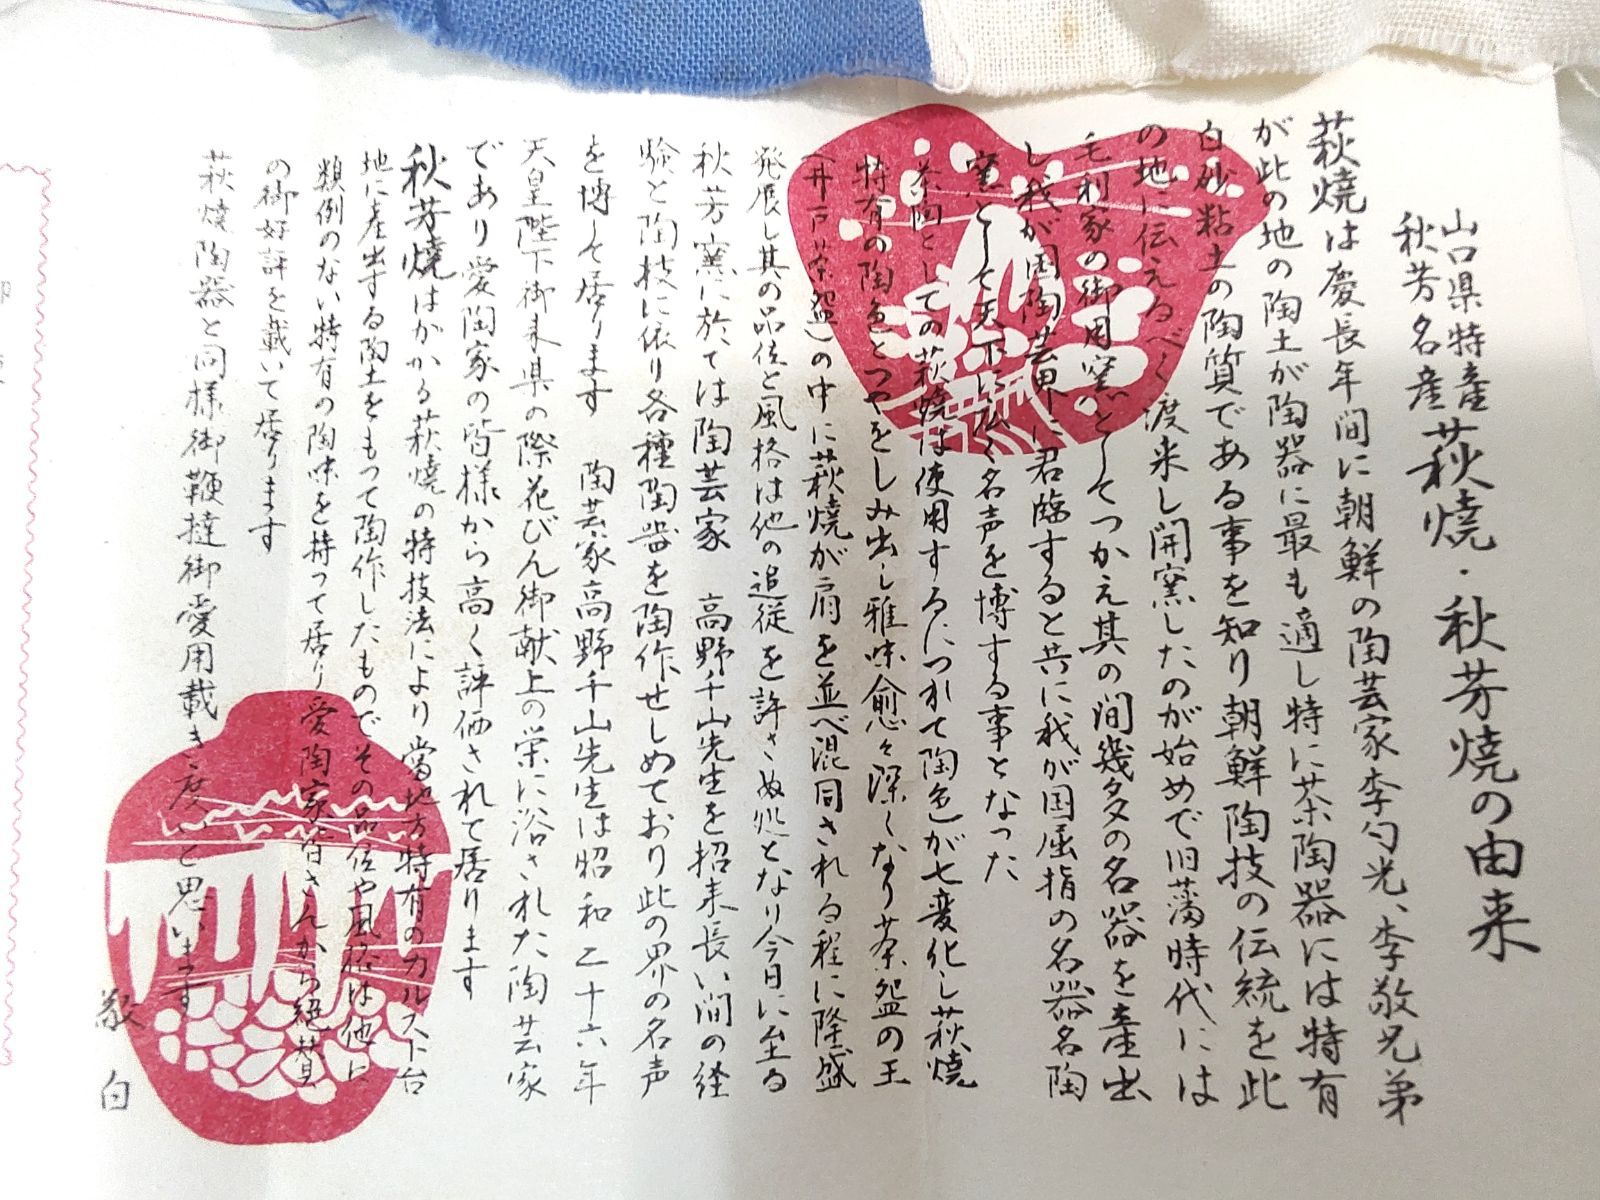 山口県特産
秋芳名産
萩焼・秋芳焼の由来
萩焼は慶長年間に朝鮮の陶芸家李勺光、李敬兄弟
が此の地の陶土が陶器に最も適し特に茶陶器には特有
白砂粘土の陶質である事を知り朝鮮陶技の伝統を此
の地に伝えるべく渡来し開窯したのが始めで旧藩時代には
毛利家の御用窯としてつかえ其の間幾多の名器を産出
し我が国陶芸界に君臨すると共に我が国屈指の名器名陶
窯として天下に広く名声を博する事となった
茶陶としての萩焼は使用するにつれて陶色が七変化し萩焼
特有の陶色とつやをしみ出し雅味愈々深くなり茶盌の王
(井戸茶盌)の中に萩焼が肩を並べ混同される程に隆盛
発展し其の品位と風格は他の追従を許さぬ処となり今日に至る
秋芳窯に於ては陶芸家 高野千山先生を招来長い間の経
験と陶技に依り各種陶器を陶作せしめており此の界の名声
を博して居ります 陶芸家高野千山先生は昭和二十六年
天皇陛下御来県の際花びん御献上の栄に浴された陶芸家
であり愛陶家の皆様から高く評価されて居ります
秋芳焼はかかる萩焼の特技法により當地方特有のカルスト台
地に産出する陶土をもって陶作したもので その品位や風格は他に
類例のない特有の陶味を持って居り愛陶家皆さんから絶賛
の御好評を載いて居ります
萩焼陶器と同様御鞭撻御愛用載き度いと思います
敬白